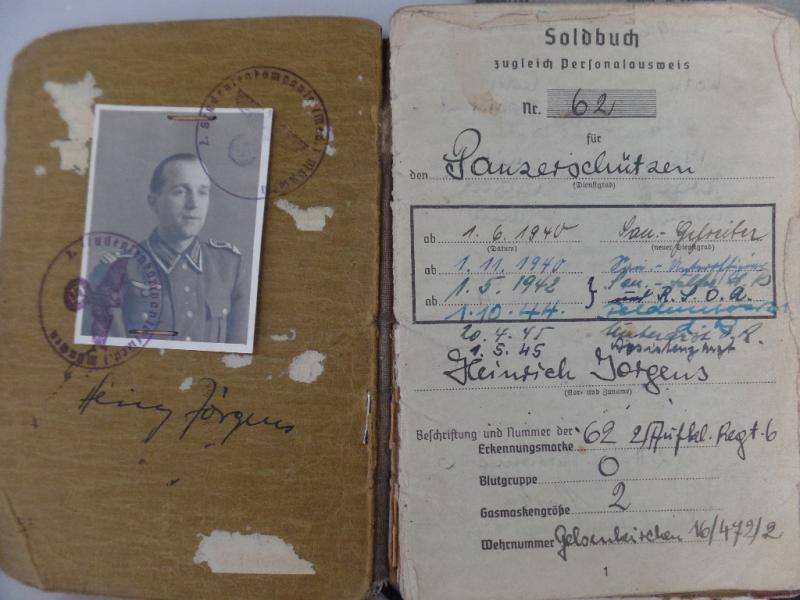 2. Studentenkompanie (med.)
2. Studentenkompanie (med.) München
Heinz Jörgens
Soldbuch
zugleich Personalausweis
Nr. 62
für
den Panzerschützen
(Dienstgrad)
ab 1. 6. 1940 San.-Gefreiter
(Datum) (neuer Dienstgrad)
ab 1. 11. 1940 San.-
1. 5. 1942 } San.-
ab R. S. O. A.
1. 10. 44.
20. 4. 45 Unterarzt d. R.
1. 5. 45 Assistenzarzt
Heinrich Jörgens
(Vor- und Zuname)
Beschriftung und Nummer der
Erkennungsmarke 62 2/Aufkl. Regt. 6
Blutgruppe O
Gasmaskengröße 2
Wehrnummer Gelsenkirchen 16/472/2
1